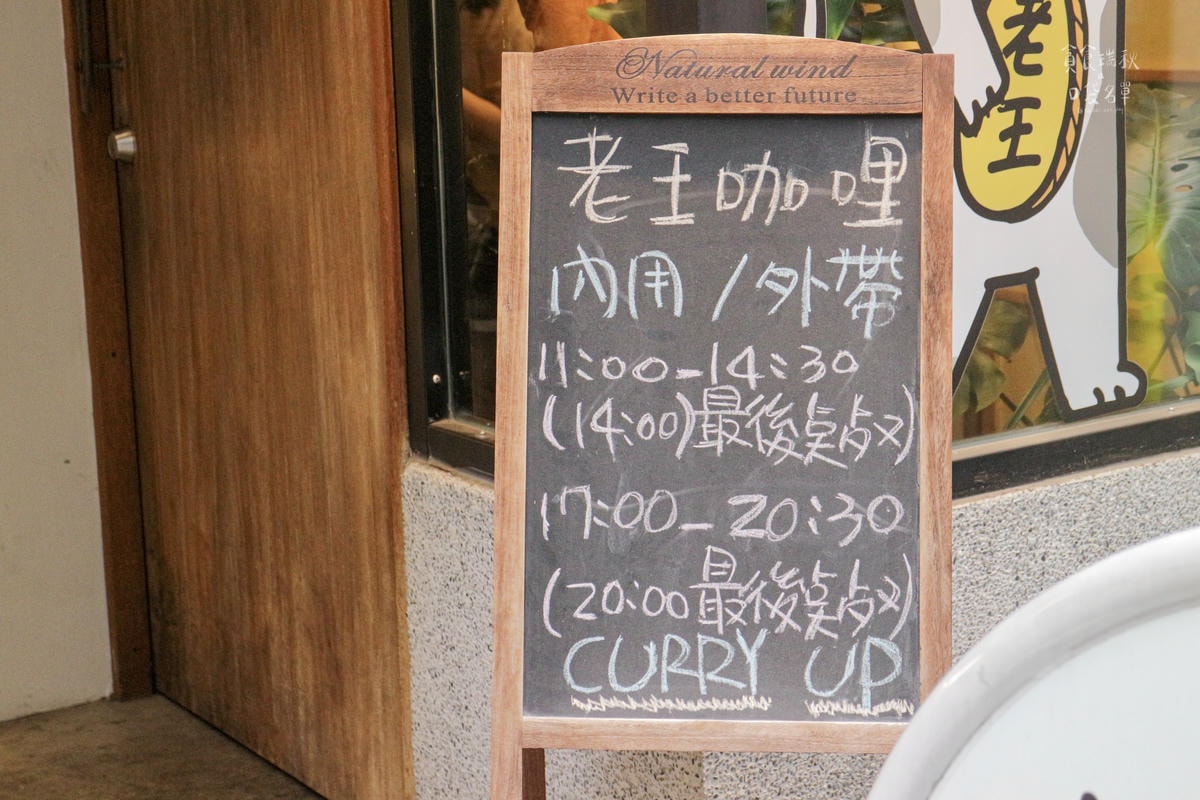 Natural wind
Write a better future
老王咖哩
內用/外帶
11:00-14:30
(14:00)最後點餐)
17:00-20:30
(20:00最後點餐)
CURRY UP
老王
貪食瑞秋
口袋名單